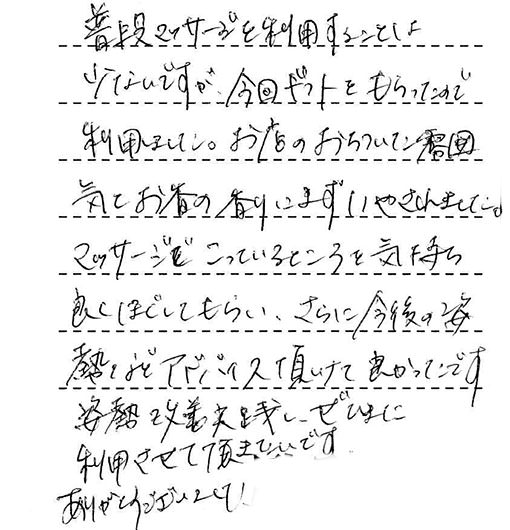 普段マッサージを利用することは
少ないですが、今回ギフトをもらったので
利用しました。お店のおちついた雰囲
気とお香の香りにまずいやされました。
マッサージもこっているところを気持ち
良くほぐしてもらい、さらに今後の姿
勢などアドバイス頂けて良かったです
姿勢改善実践し、ぜひまた
利用させて頂きたいです
ありがとうございました!